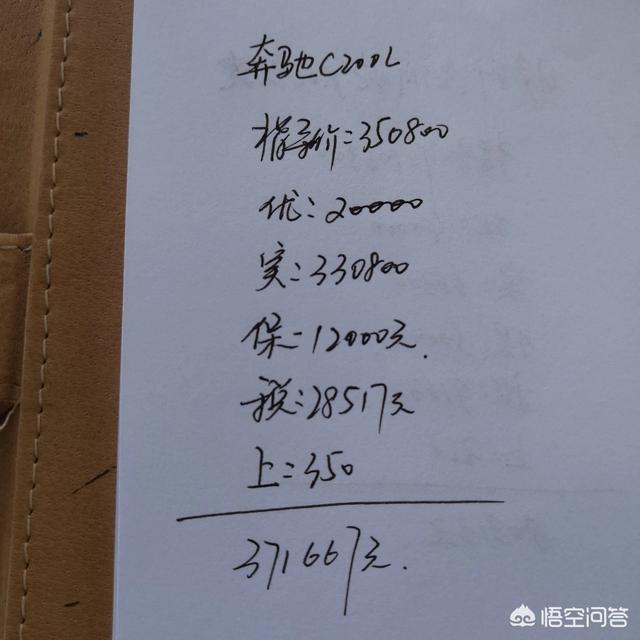 奔驰C200L
指导价:350800
优:20000
实:330800
保:12000元.
税:28517元
上:350
371667元.
悟空问答